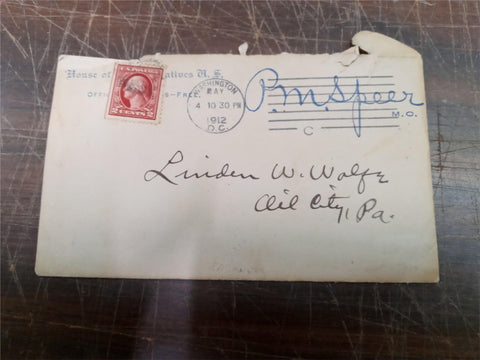 House of atives U. S.
OFFIC S—FREE.
U.S. POSTAGE
2 CENTS 2
WASHINGTON
MAY
4 10 30 PM
1912
D.C.
C
P.M. Speer
M.C.
Linden W. Wolfe
Oil City, Pa.